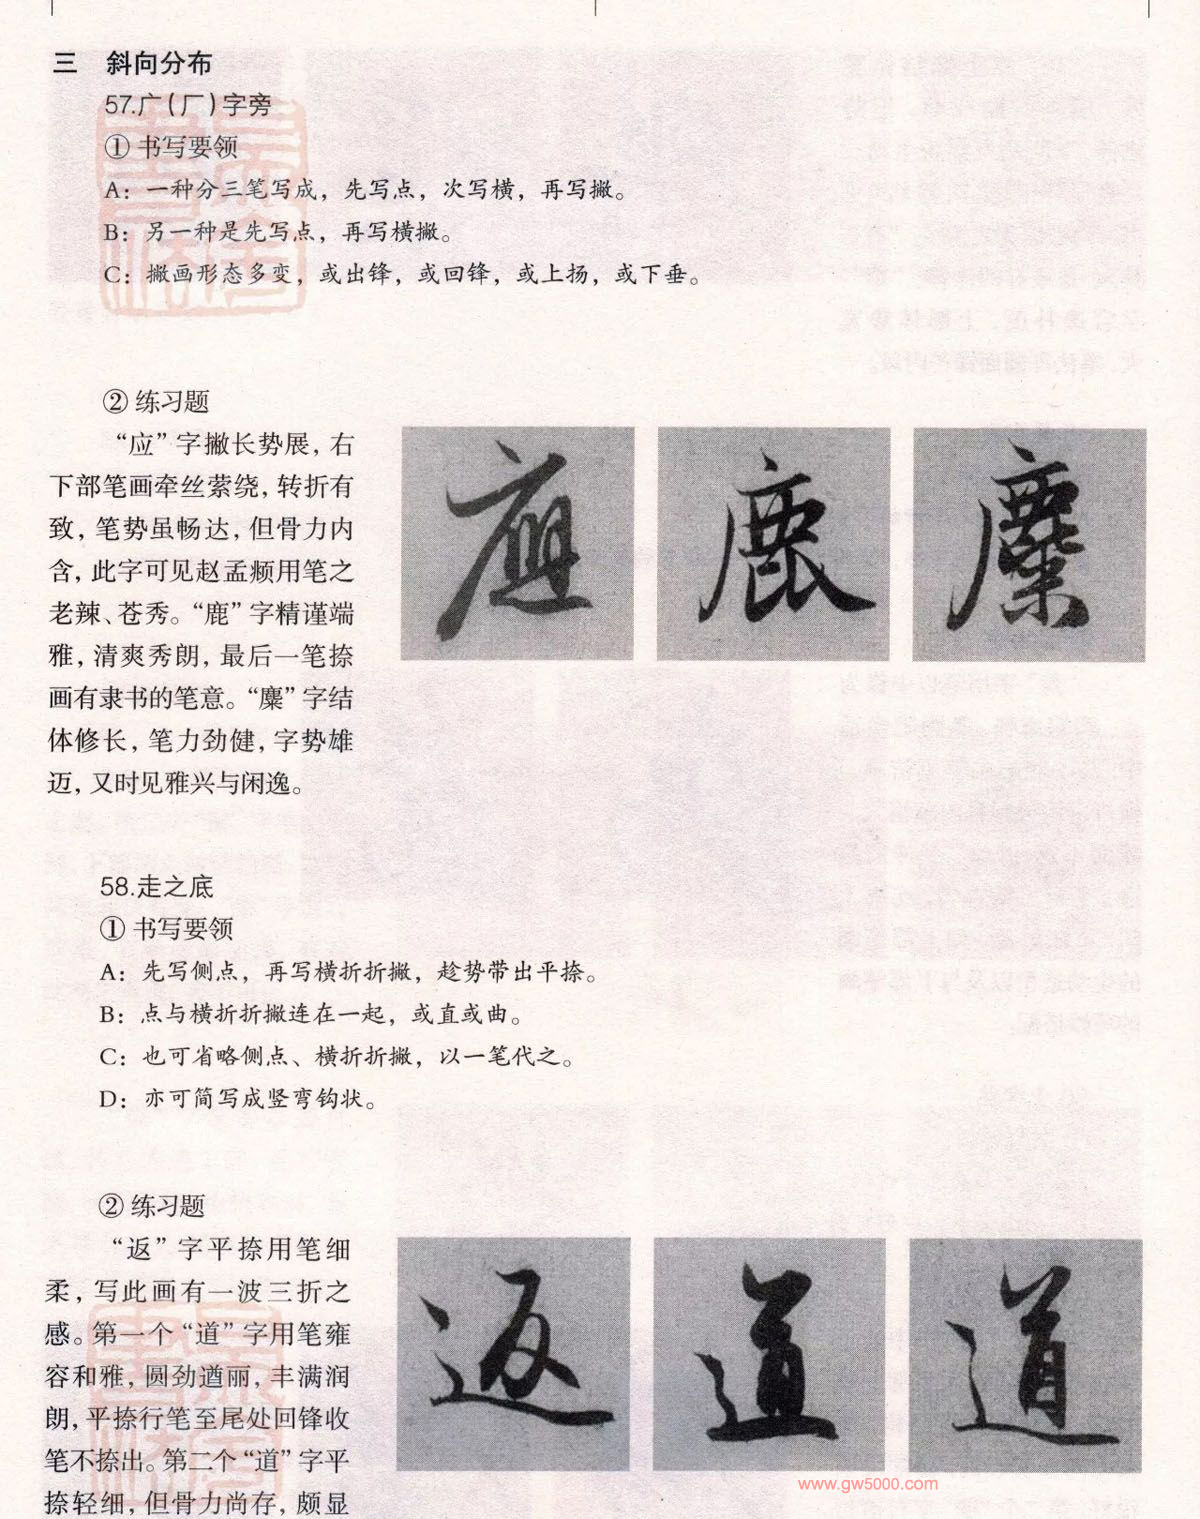 三 斜向分布
57.广(厂)字旁
① 书写要领
A：一种分三笔写成，先写点，次写横，再写撇。
B：另一种是先写点，再写横撇。
C：撇画形态多变，或出锋，或回锋，或上扬，或下垂。
② 练习题
“应”字撇长势展，右
下部笔画牵丝萦绕，转折有
致，笔势虽畅达，但骨力内
含，此字可见赵孟頫用笔之
老辣、苍秀。“鹿”字精谨端
雅，清爽秀朗，最后一笔捺
画有隶书的笔意。“麋”字结
体修长，笔力劲健，字势雄
迈，又时见雅兴与闲逸。
應 鹿 麋
58.走之底
① 书写要领
A：先写侧点，再写横折折撇，趁势带出平捺。
B：点与横折折撇连在一起，或直或曲。
C：也可省略侧点、横折折撇，以一笔代之。
D：亦可简写成竖弯钩状。
② 练习题
“返”字平捺用笔细
柔，写此画有一波三折之
感。第一个“道”字用笔雍
容和雅，圆劲遒丽，丰满润
朗，平捺行笔至尾处回锋收
笔不捺出。第二个“道”字平
捺轻细，但骨力尚存，颇显
返 道 道
www.gw5000.com